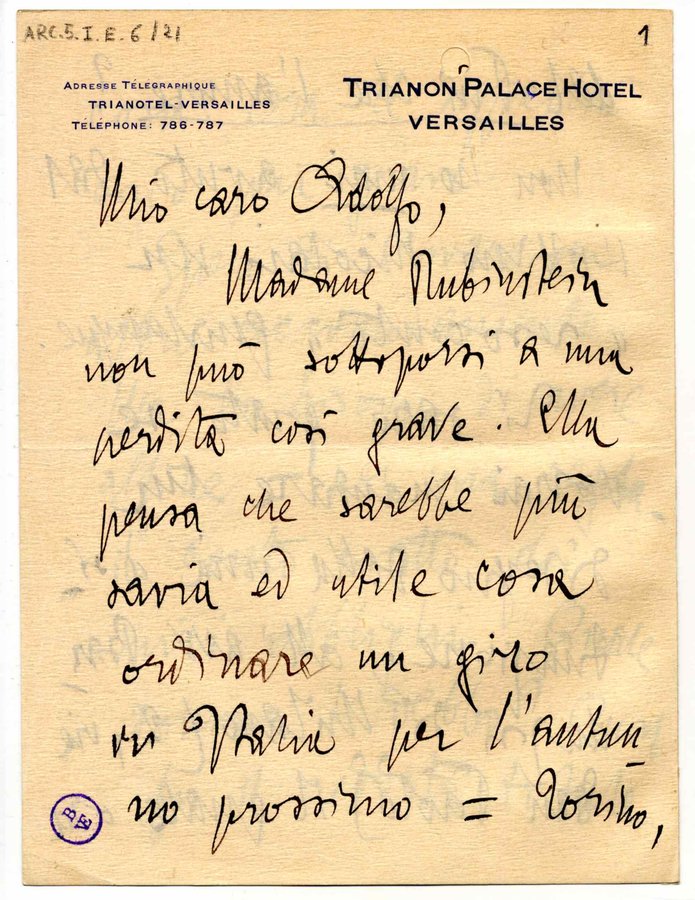 ARC.5.I.E.6/21
1
ADRESSE TÉLÉGRAPHIQUE
TRIANOTEL-VERSAILLES
TÉLÉPHONE: 786-787
TRIANON PALACE HOTEL
VERSAILLES
Mio caro Adolfo,
Madame Rubinstein
non può sottoporsi a una
perdita così grave. Ella
pensa che sarebbe più
savia ed utile cosa
ordinare un giro
in Italia per l'autun
no prossimo = Torino,
BVE